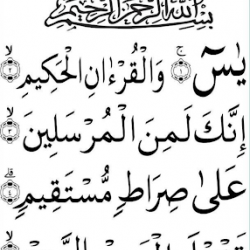 بِسْمِ اللَّهِ الرَّحْمَٰنِ الرَّحِيمِ
يسٓ ١ وَالْقُرْءَانِ الْحَكِيمِ ٢
إِنَّكَ لَمِنَ الْمُرْسَلِينَ ٣
عَلَىٰ صِرَاطٍ مُّسْتَقِيمٍ ٤